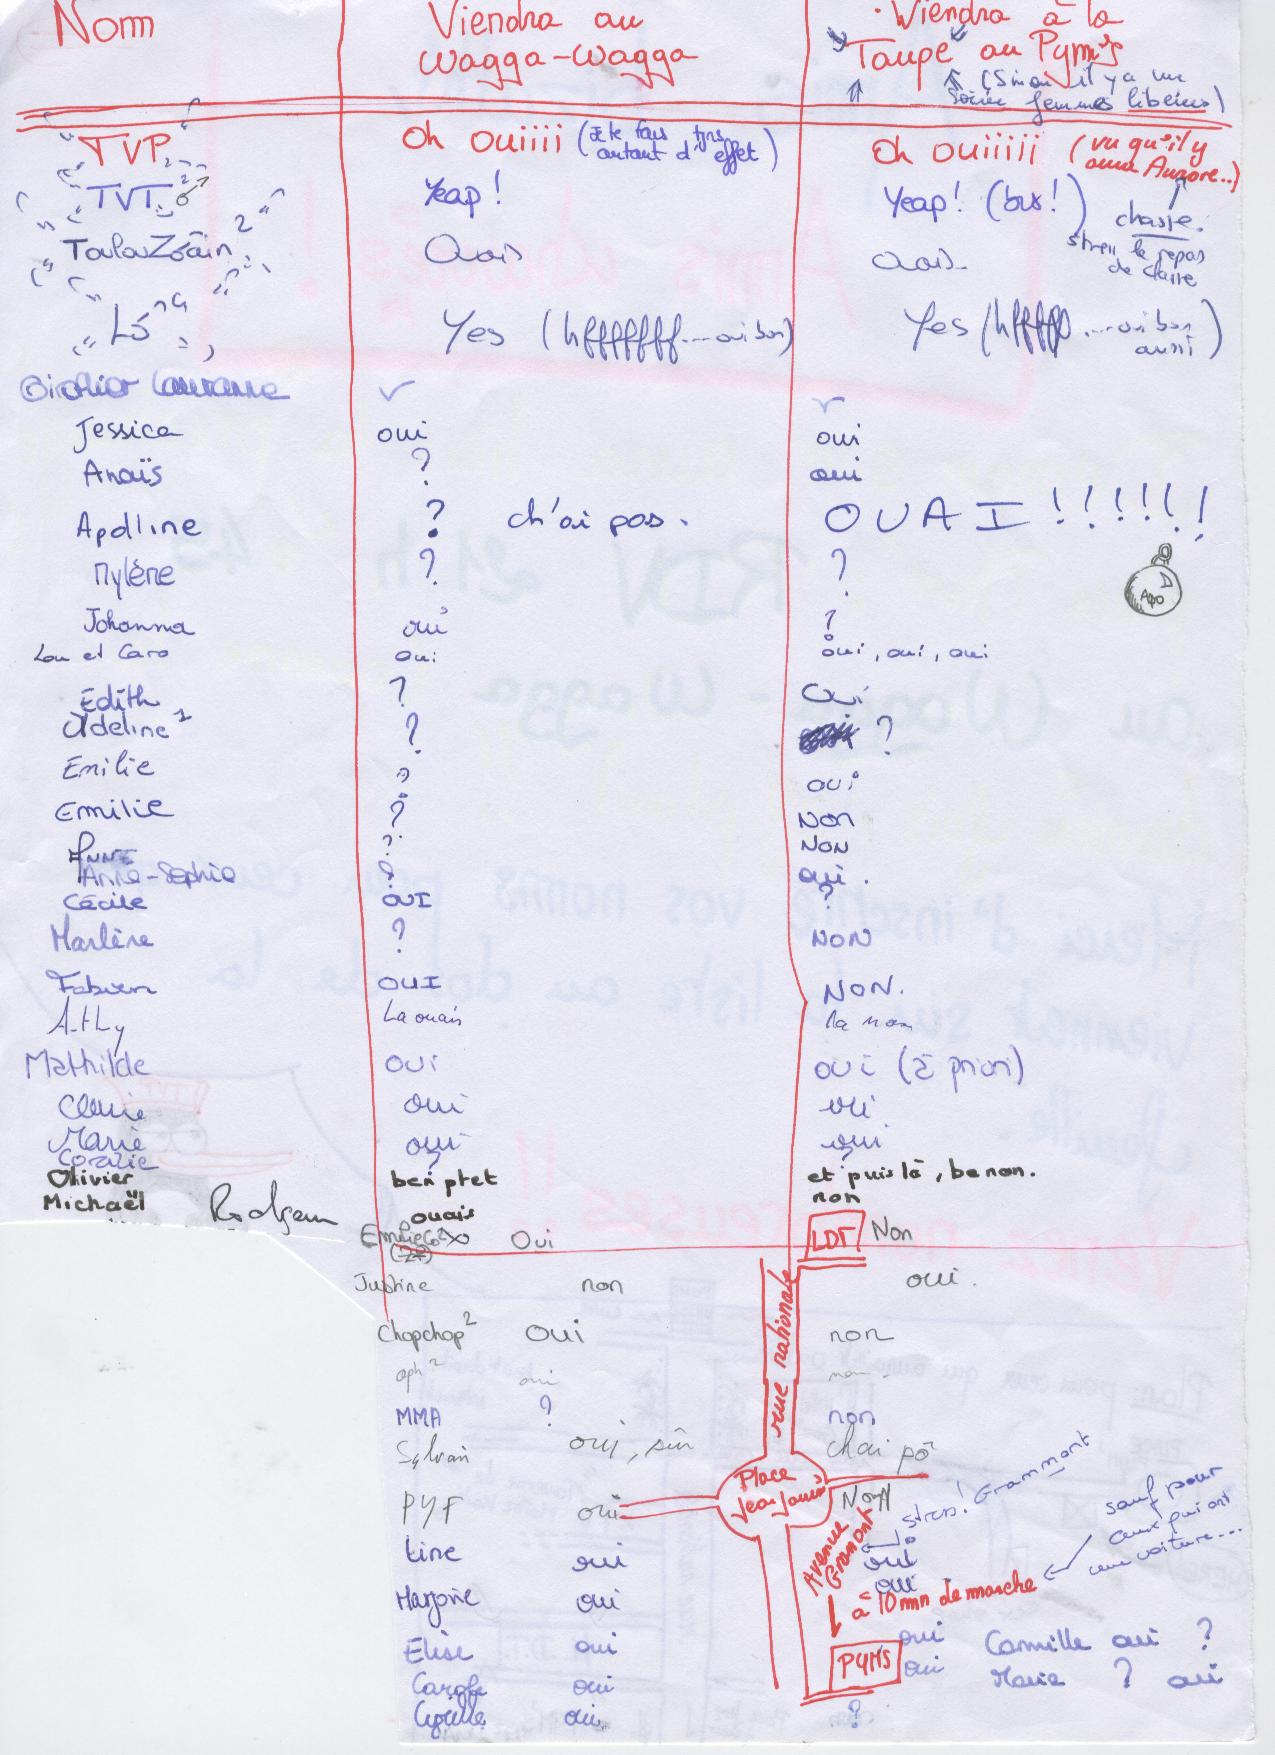 Nom
Viendra au Wagga-Wagga
Viendra à la "Taupe" au Pym's
(Sinon il y a une soirée femmes libérées)
TVP² Oh ouiiii (Je le fais tjrs autant d'effet) Oh ouiiiii (vu qu'il y aura Aurore...)
TVT² Yeap! Yeap! (bis!)
chasse.
le repas de claire
ToulouZain² Ouais Ouais
Lo Yes (hfffffff....oui bon) Yes (hfffff....oui bon aussi)
Lauranne ✓ ✓
Jessica oui oui
Anaïs ? oui
Apolline ? ch'ai pas. OUAI!!!!!!
Apo
Mylène ? ?
Johanna oui ?
Lou et Caro oui oui, oui, oui
Edith ? Oui
Adeline ? ?
Emilie ? oui
Emilie ? Non
Anne ? Non
Anne-Sophie ? oui.
Cécile OUI ?
Marlène ? NON
Fabien OUI NON.
A-tLy La ouais la non
Mathilde oui oui (à priori)
Claire oui oui
Marie oui oui
Coralie ? ?
Olivier ben ptet et puis là, be non.
Michaël ouais non
Emilie Oui Non
LDT
Justine non oui.
rue nationale
Chopchop² oui non
oph² oui non
MMA ? non
Sylvain oui, sûr chai pô
Place Jean Jaurès
PYF oui Non
stress! Grammont
sauf pour ceux qui ont une voiture...
Avenue Gramont
Line oui oui
Marjorie oui oui
à 10 mn de marche
Elise oui oui Camille oui ?
PYMS
Carole oui oui Marie ? oui
Cyrielle oui ?